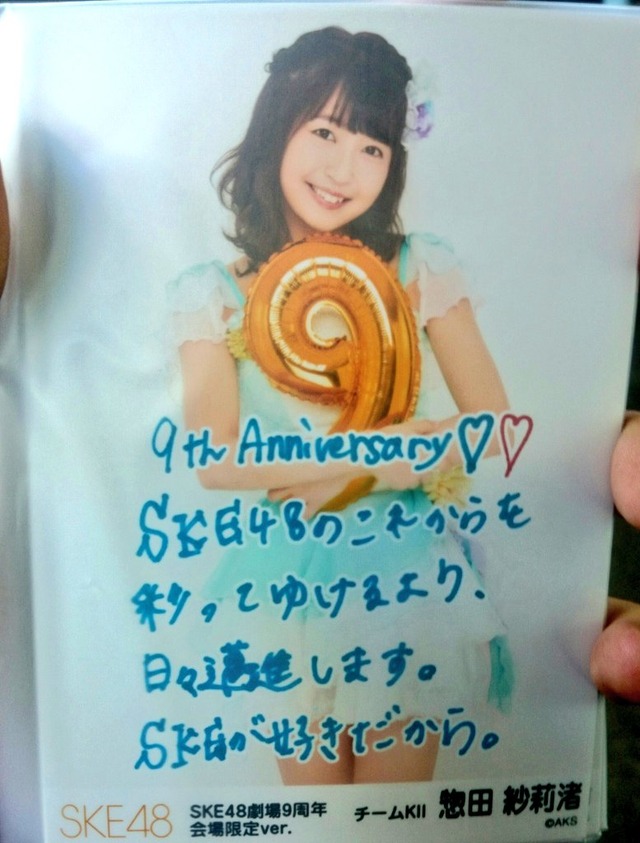 9
9th Anniversary♡♡
SKE48のこれからを
彩ってゆけるよう、
日々邁進します。
SKEが好きだから。
SKE48
SKE48劇場9周年
会場限定ver.
チームKII 惣田 紗莉渚
©AKS